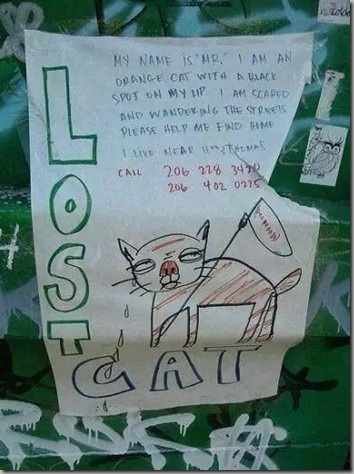 MY NAME IS "MR." I AM AN
ORANGE CAT WITH A BLACK
SPOT ON MY LIP. I AM SCARED
AND WANDERING THE STREETS
PLEASE HELP ME FIND HOME
I LIVE NEAR THOMAS
CALL 206 228
206 402 0225
LOST
CAT